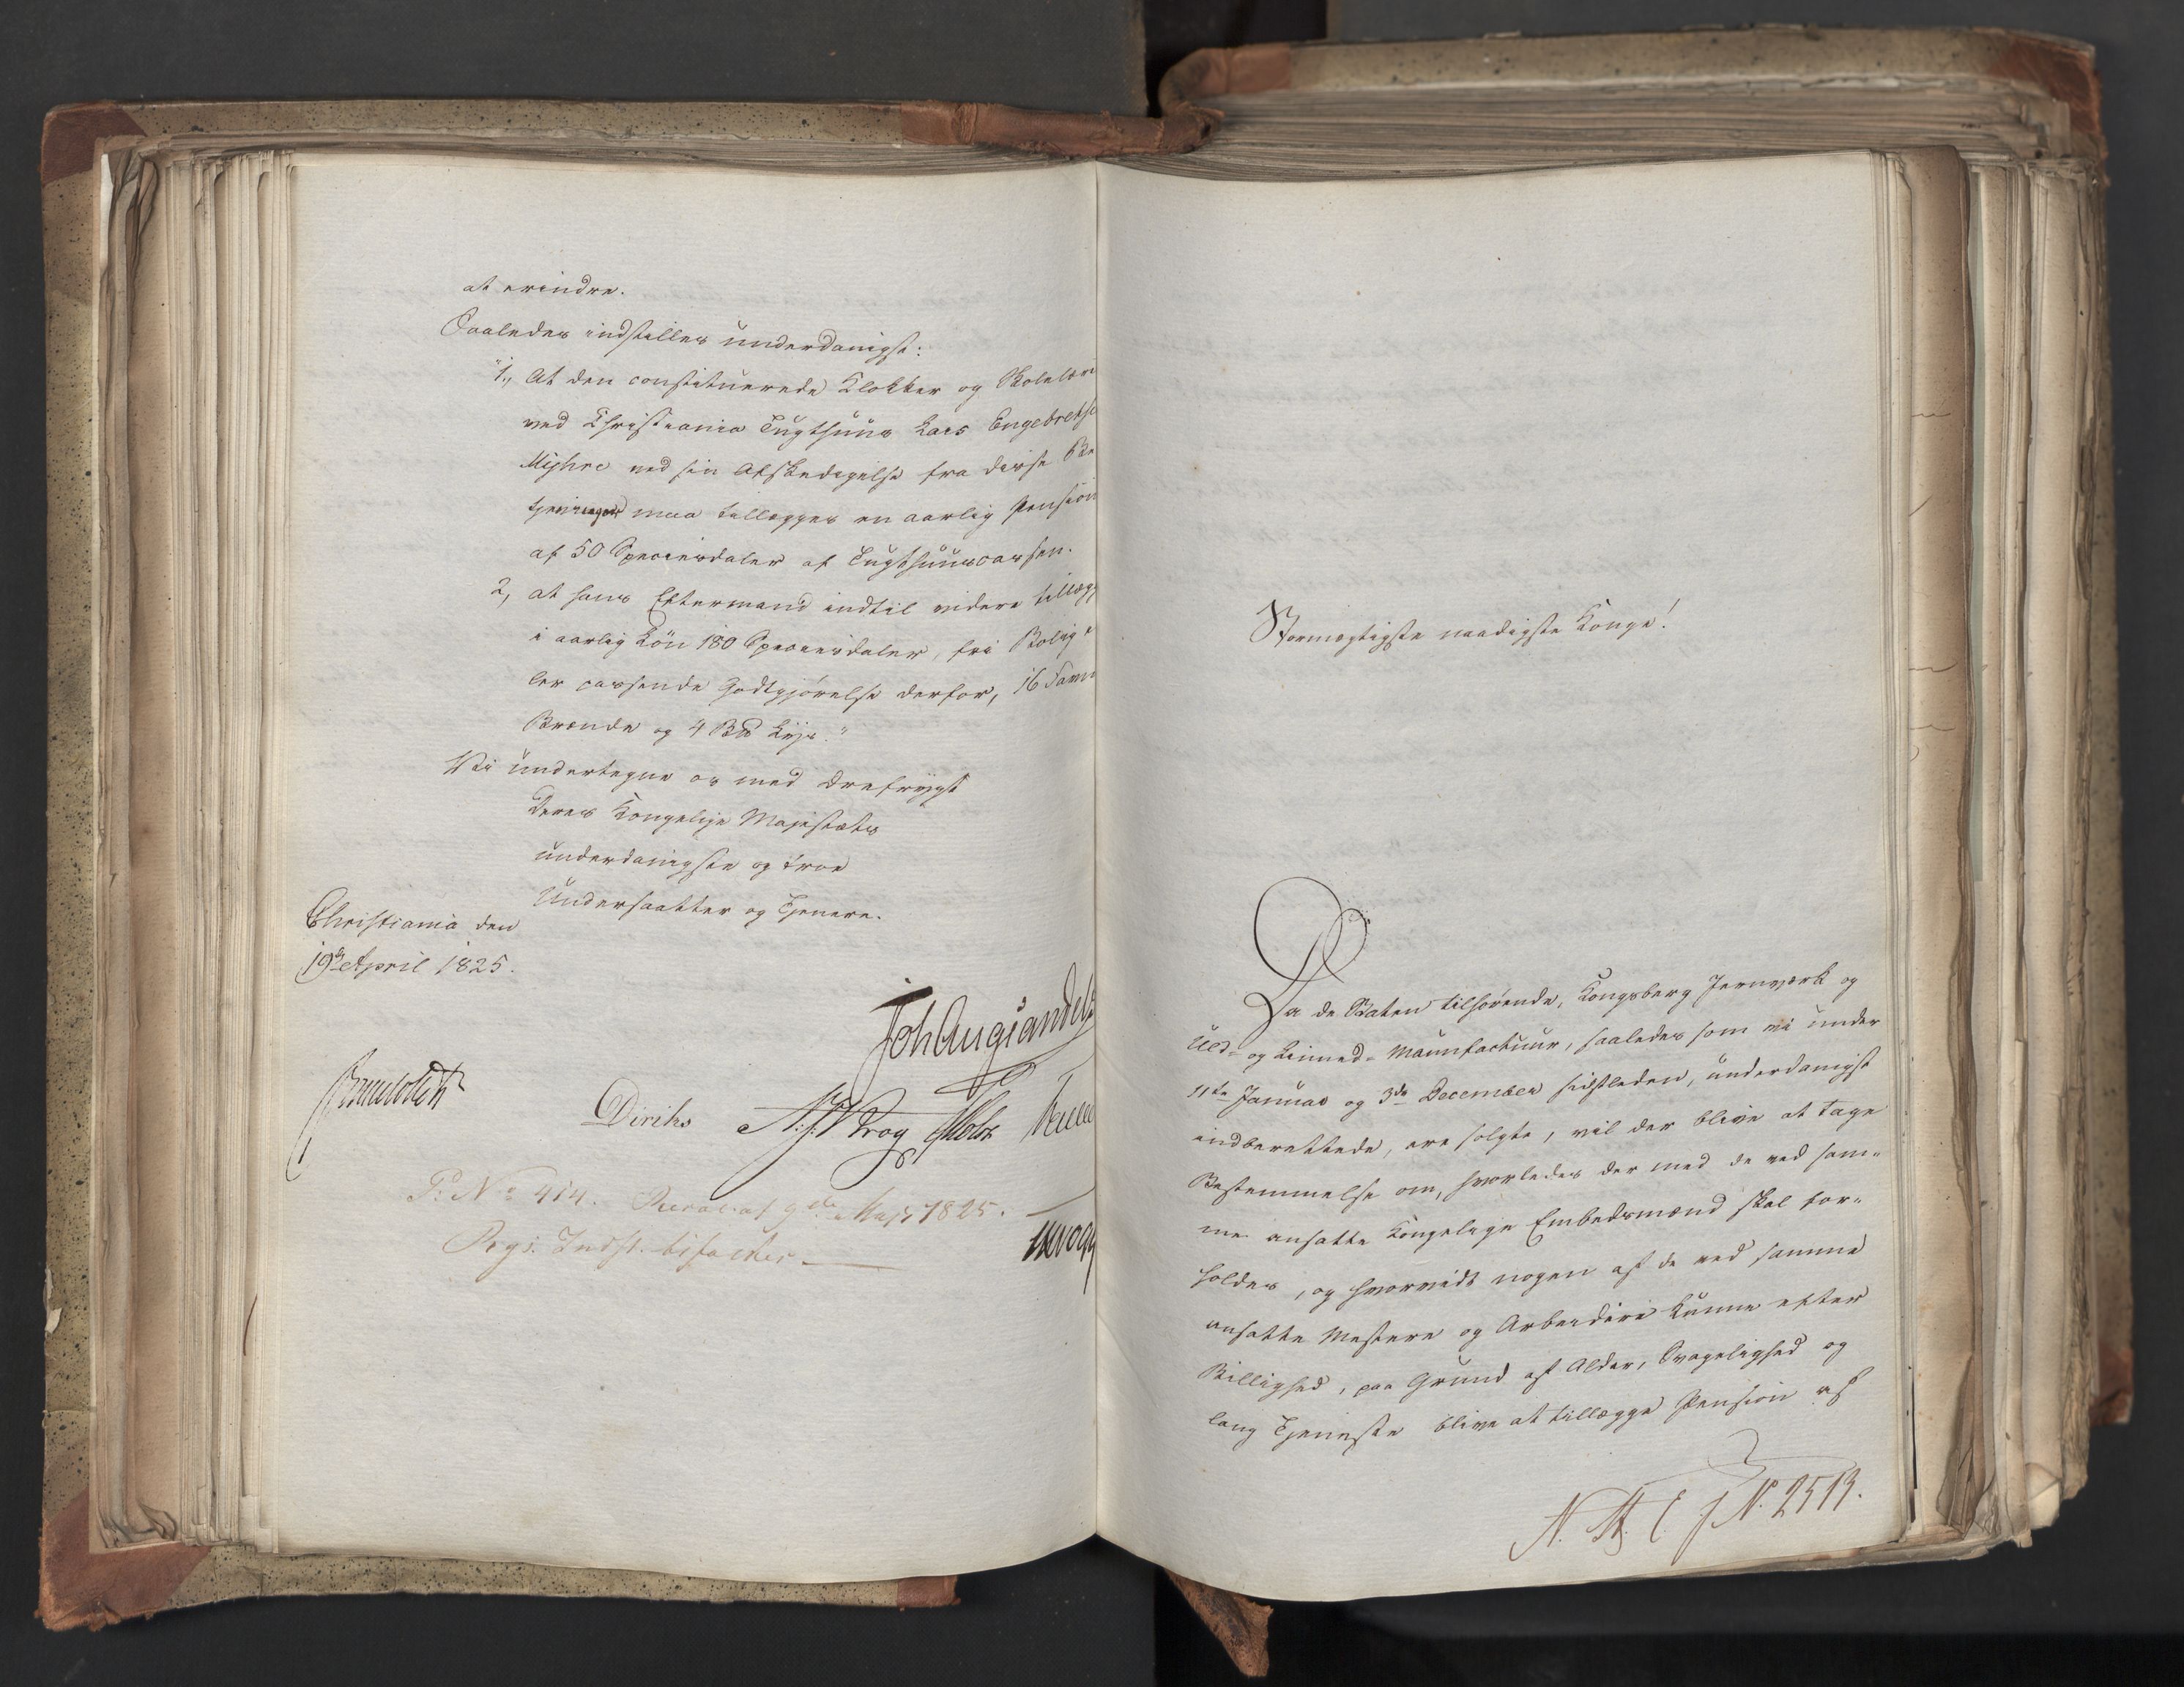 at erindre.
Saaledes indstilles underdanigst:
"1., At den constituerede Klokker og Skolelær
ved Christiania Tugthuus Lars Engebretse
Myhre ved sin Afskedigelse fra disse Be
tjeninger maa tillægges en aarlig Pension
af 50 Speciesdaler af Tugthuuscassen.
2, at hans Eftermand indtil videre tillægg
i aarlig Løn 180 Speciesdaler, fri Bolig e
ler passende Godtgjørelse derfor, 16 Favn
Brænde og 4 Lys."
Vi undertegne os med Ærefrygt
Deres Kongelige Majestæts
underdanigste og troe
Undersaatter og Tjenere.
Christiania den
19de April 1825.
Joh Aug Sandels
Diriks Krog Holst
P: No 414. Resol. af 9de Maji 1825.
Regj. Indst. bifaldes.
Stormægtigste naadigste Konge!
Da de Staten tilhørende, Kongsberg Jernværk og
Uld- og Linned-Maunfactuur, saaledes som vi under
11te Januar og 3de December sidstleden, underdanigst
indberettede, ere solgte, vil der blive at tage
Bestemmelse om, hvorledes der med de ved sam-
me ansatte Kongelige Embedsmænd skal for-
holdes, og hvorvidt nogen af de ved samme
ansatte Mestere og Arbeidere kunne efter
Billighed, paa Grund af Alder, Svagelighed og
lang Tjeneste blive at tillægge Pension af
No. 2513.